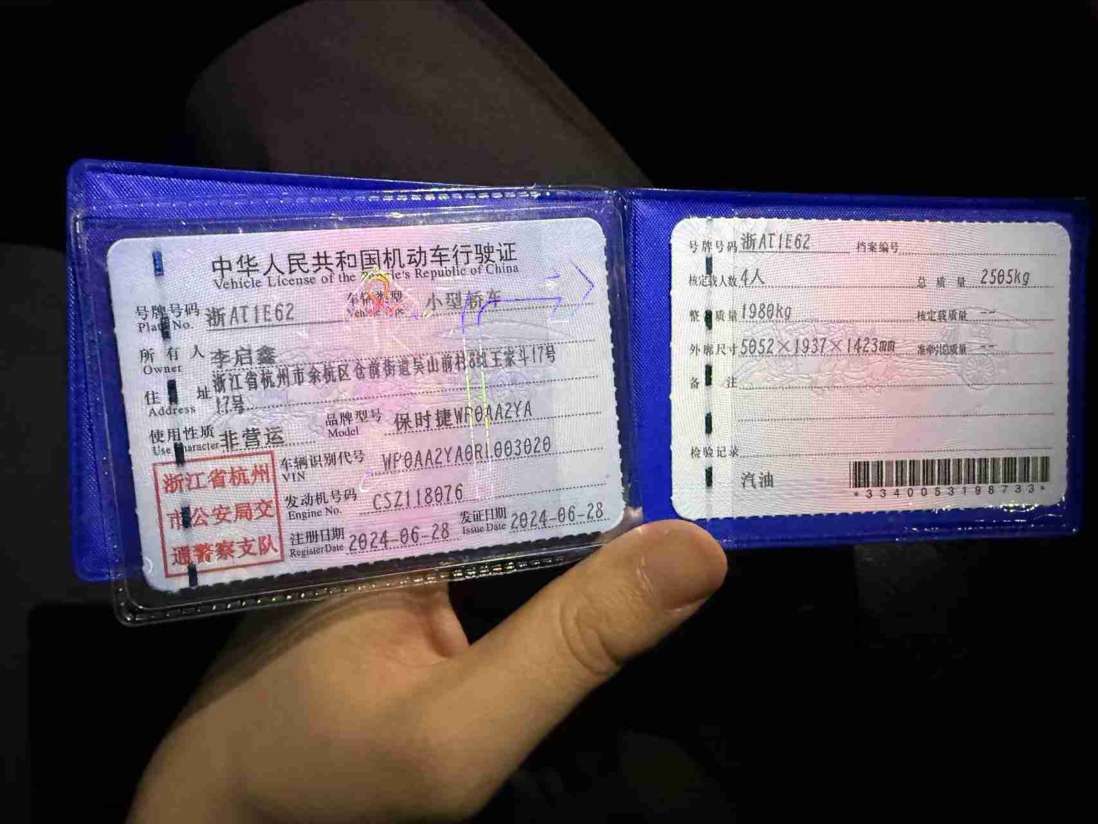 中华人民共和国机动车行驶证
Vehicle License of the People's Republic of China
号牌号码 浙AT1E62 车辆类型 小型轿车
Plate No. Vehicle Type
所有人 李启鑫
Owner
住址 浙江省杭州市余杭区仓前街道吴山前村8组王家斗17号
Address 17号
使用性质 非营运 品牌型号 保时捷WP0AA2YA
Use Character Model
浙江省杭州
市公安局交
通警察支队
车辆识别代号 WP0AA2YA0RL003020
VIN
发动机号码 CSZ118076
Engine No.
注册日期 2024-06-28 发证日期 2024-06-28
Register Date Issue Date
号牌号码 浙AT1E62 档案编号
核定载人数 4人 总质量 2505kg
整备质量 1980kg 核定载质量 --
外廓尺寸 5052×1937×1423mm 准牵引总质量 --
备注
检验记录
汽油
*3340053198733*